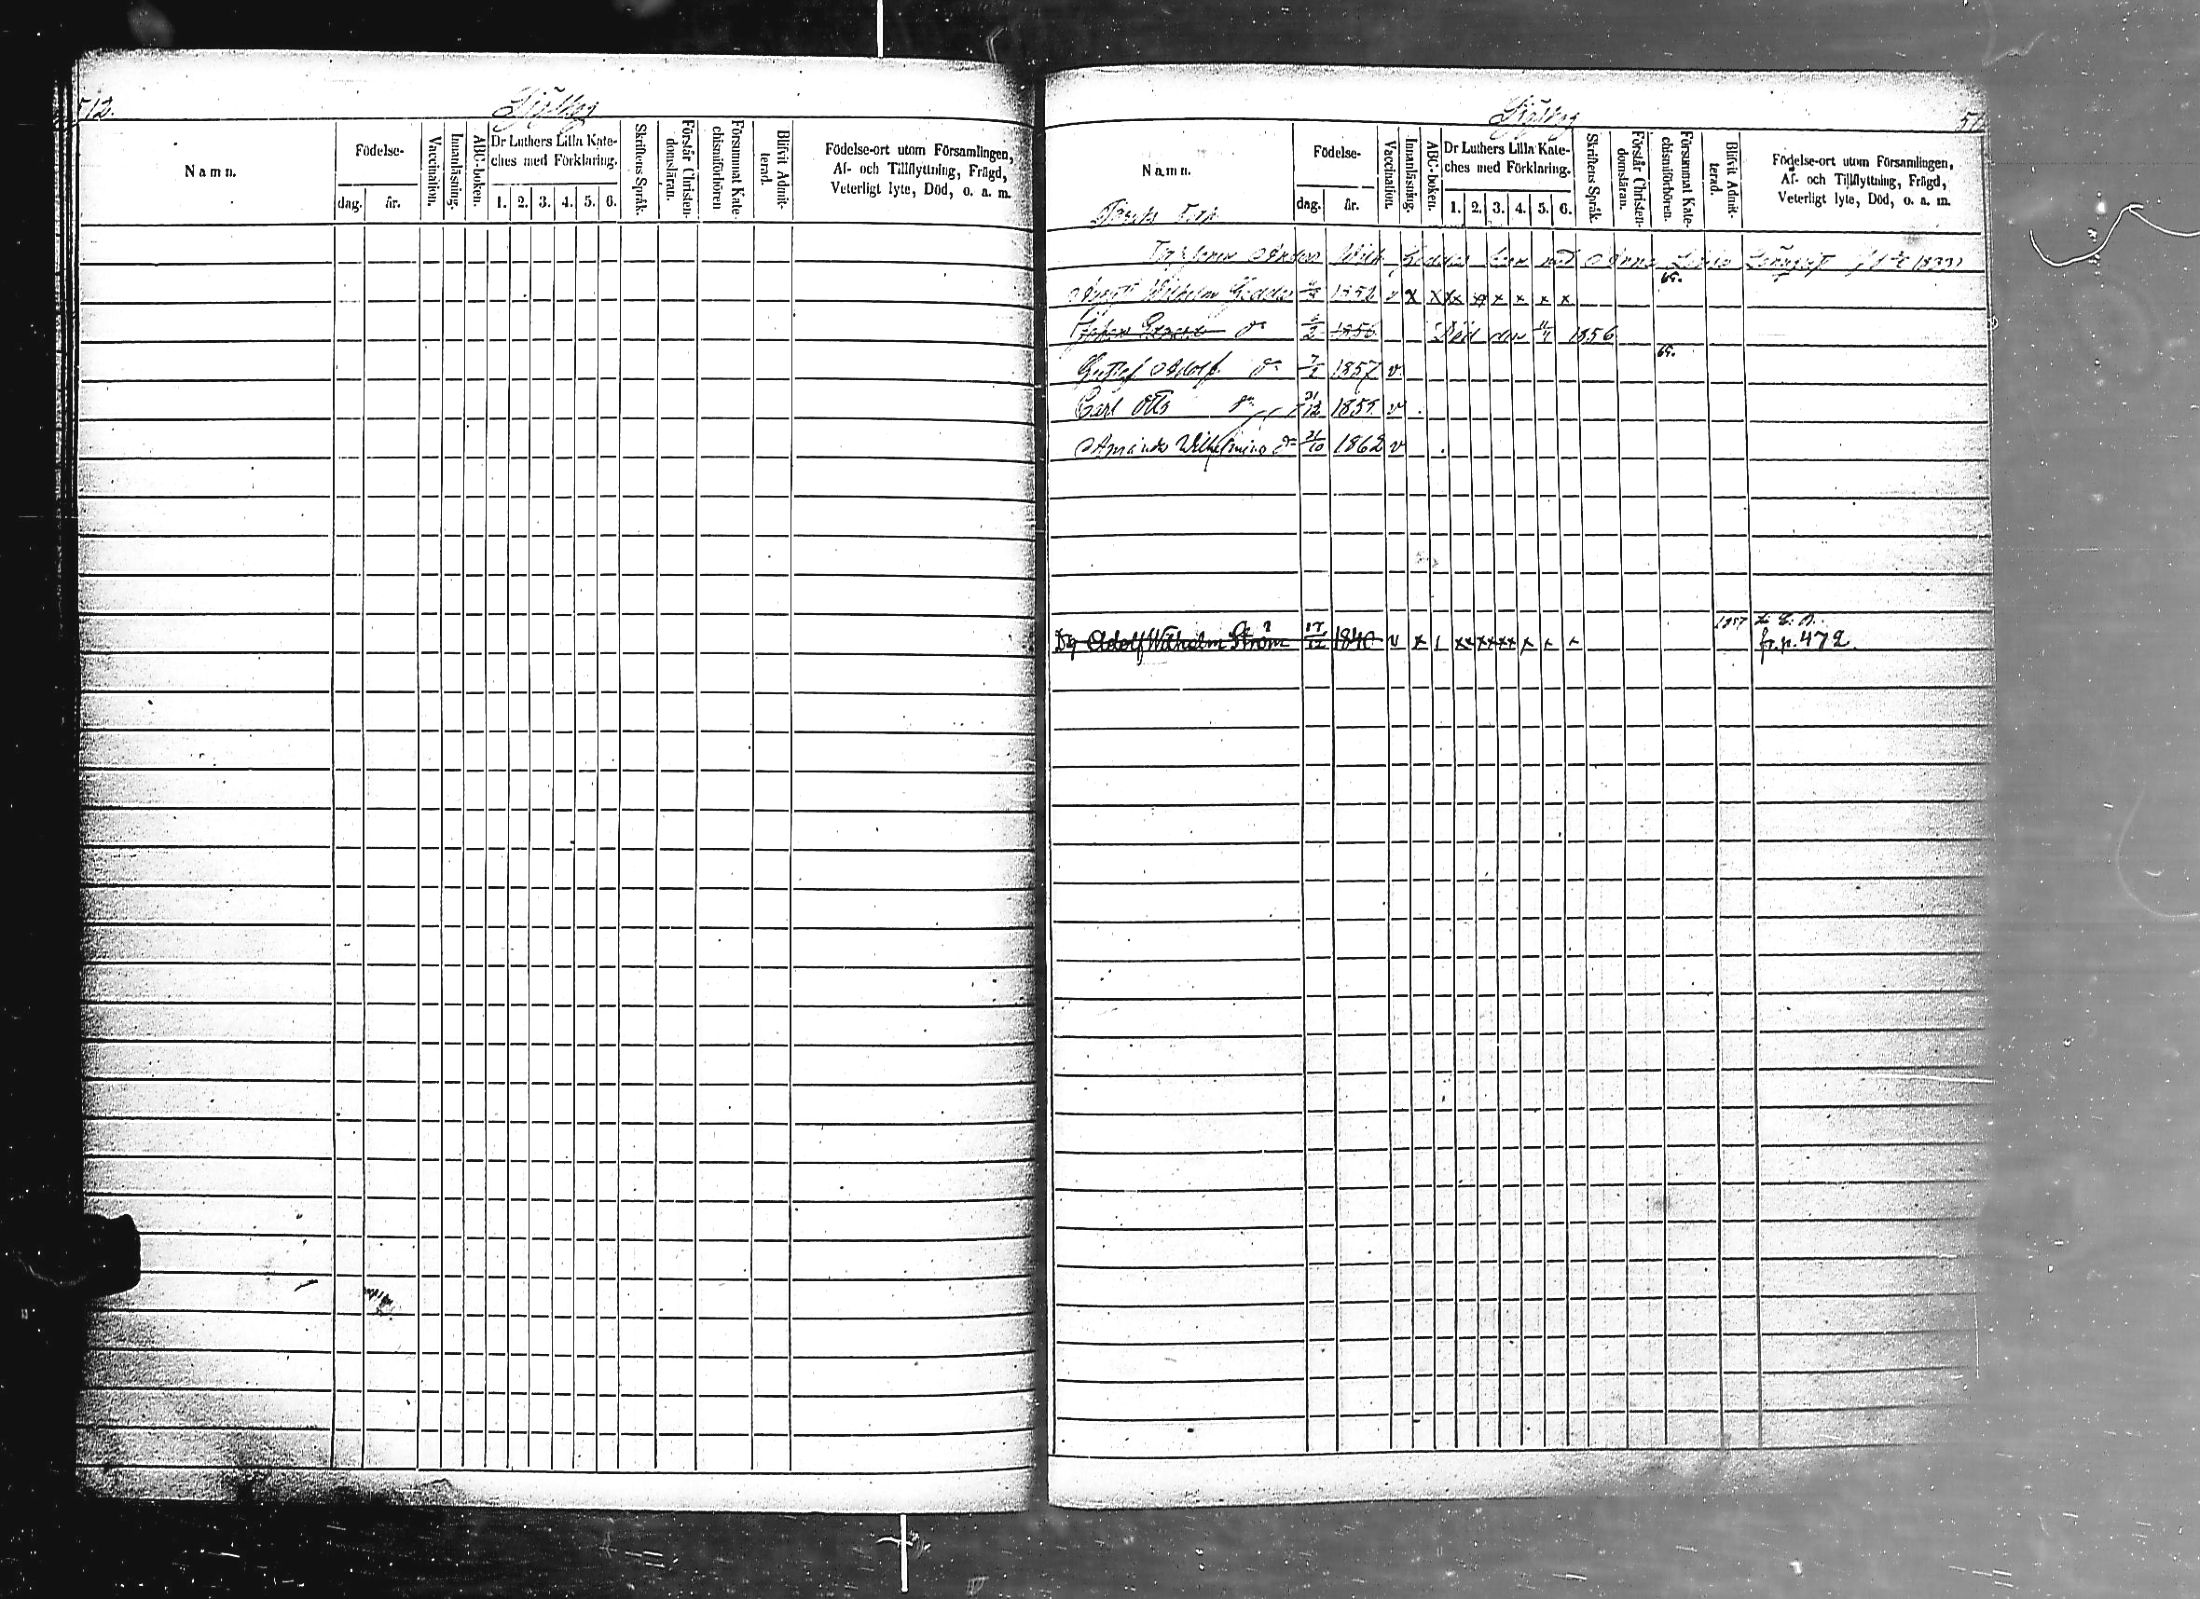 512.
Namn.
Födelse-
dag.
år.
Vaccination.
Innanläsning.
ABC-boken.
Dr Luthers Lilla Kate-
ches med Förklaring.
1. 2. 3. 4. 5. 6.
Skriftens Språk.
Förstår Christen-
domsläran.
Försummat Kate-
chismiförhören
Blifvit Admit-
terad.
Födelse-ort utom Församlingen,
Af- och Tillflyttning, Frägd,
Veterligt lyte, Död, o. a. m.
51
Namn.
Födelse-
dag.
år.
Vaccination.
Innanläsning.
ABC-boken.
Dr Luthers Lilla Kate-
ches med Förklaring.
1. 2. 3. 4. 5. 6.
Skriftens Språk.
Förstår Christen-
domsläran.
Försummat Kate-
chismiförhören.
Blifvit Admit-
terad.
Födelse-ort utom Församlingen,
Af- och Tillflyttning, Frägd,
Veterligt lyte, Död, o. a. m.
Anders Wilh. med Anna 1833
August Wilhelm 1852 v x x xx x x x x x 65.
Johan dо 2 1856 Död den 11/4 1856
Gustaf Adolf do 7/2 1857 v 65.
Carl Otto do 21/12 1859 v
Amanda Wilhelmina do 21/10 1862 v
Dg Adolf Wilhelm Ström 17/12 1840 v x 1 xx xx xx x x x 1857
fr. p. 472.